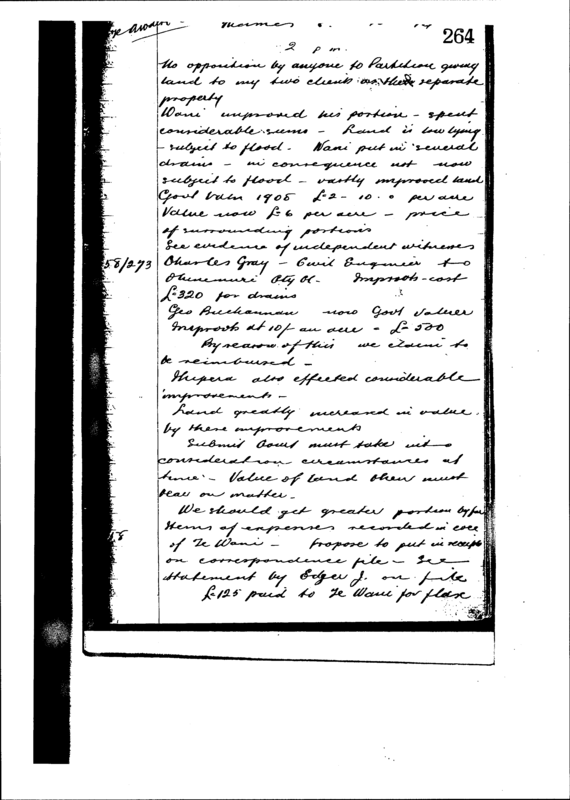 264
2 p m.
No opposition by anyone to Partition giving
land to my two clients as their separate
property
Wani improved his portion - spent
considerable sums - Land is low lying
- subject to flood. Wani put in several
drains - in consequence not now
subject to flood - vastly improved land
Govt Valn 1905 £2-10.0 per acre
Value now £6 per acre - price
of surrounding portions
See evidence of independent witnesses
58/273 Charles Gray - Civil Engineer to
Ohinemuri Cty Cl. Improvts - cost
£320 for drains
Geo Buchannan now Govt Valuer
Improvts at 10/- an acre = £500
By reason of this we claim to
be reimbursed -
also effected considerable
improvements -
Land greatly increased in value
by these improvements
Submit Court must take into
consideration circumstances at
time - Value of land then must
bear on matter -
We should get greater portion by far
Items of expenses recorded in case
of Te Wani - Propose to put in receipts
on correspondence file - See
statement by Edger J. on file
£125 paid to Te Wani for flax